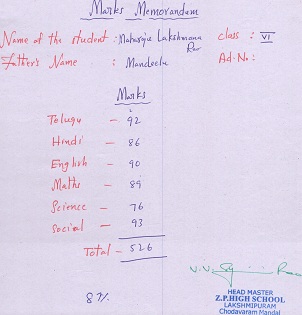 Marks Memorandum
Name of the student : Maharaju Lakshmana Rao class : VI
Father's Name : Mandeelu Ad. No. :
Marks
Telugu - 92
Hindi - 86
English - 90
Maths - 89
Science - 76
Social - 93
Total - 526
V.V.
HEAD MASTER
Z.P.HIGH SCHOOL
LAKSHMIPURAM
Chodavaram Mandal